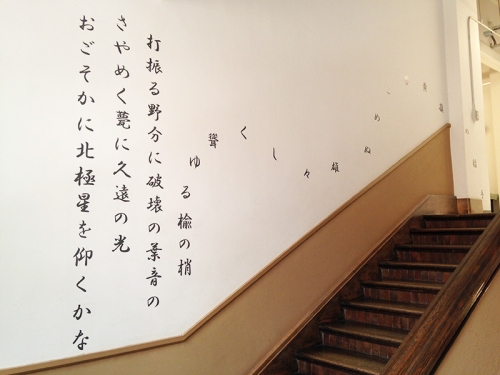 めぬ
雄々しく聳ゆる楡の梢
打振る野分に破壊の葉音の
さやめく甍に久遠の光
おごそかに北極星を仰くかな